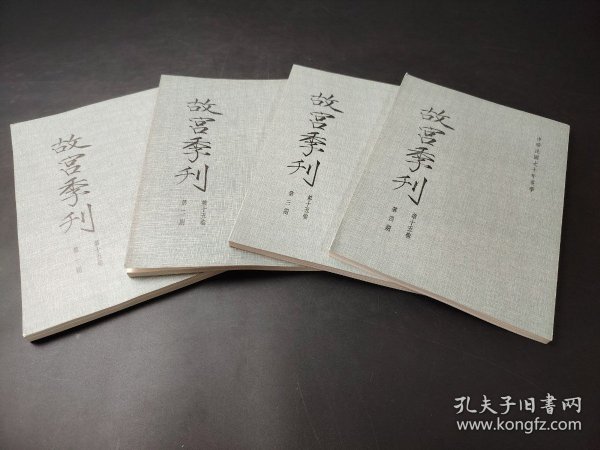 故宮季刊
第十五卷
第一期
故宮季刊
第十五卷
第二期
故宮季刊
第十五卷
第三期
故宮季刊
第十五卷
第四期
中華民國七十年夏季
孔夫子旧書网
www.kongfz.com